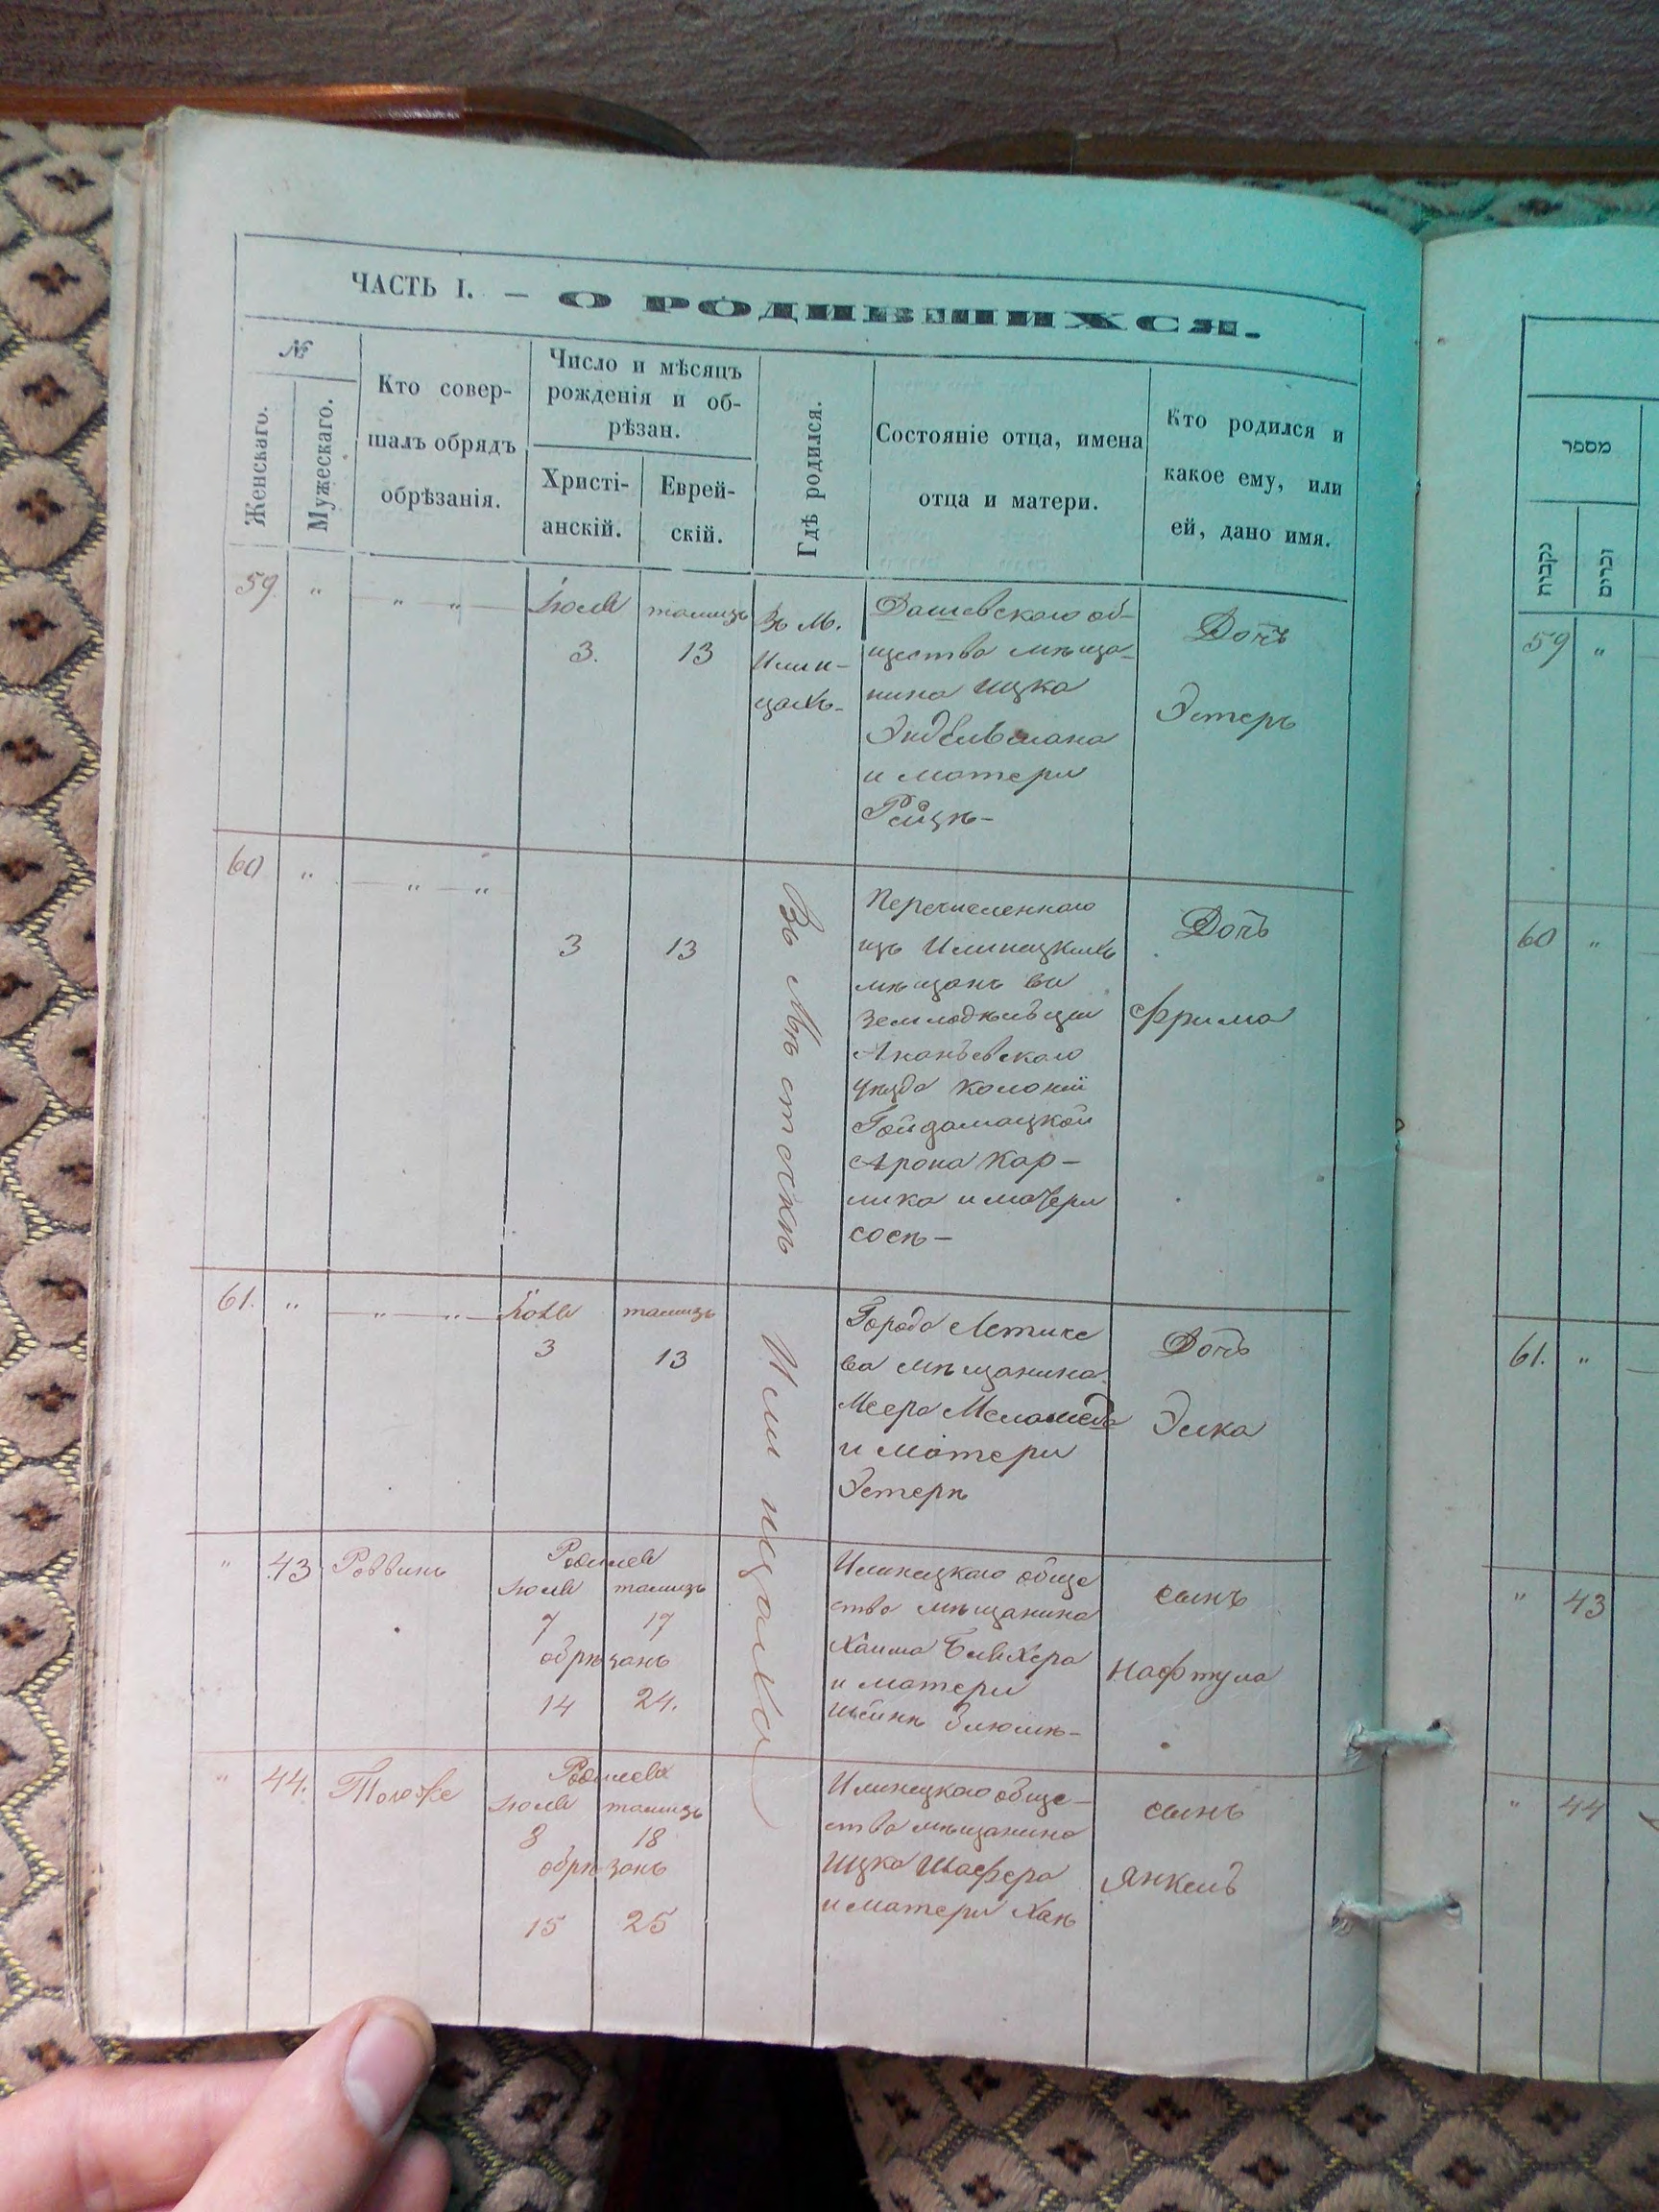 ЧАСТЬ I. — О РОДИВШИХСЯ.
№
Женскаго.
Мужескаго.
Кто совер-
шалъ обрядъ
обрѣзанія.
Число и мѣсяцъ
рожденія и об-
рѣзан.
Христі-
анскій.
Еврей-
скій.
Гдѣ родился.
Состояніе отца, имена
отца и матери.
Кто родился и
какое ему, или
ей, дано имя.
59 " " " Іюля тамизъ
3. 13
Въ М.
Илин-
цахъ-
Дашевскаго об-
щества мѣща-
нина Ицка
Эндельмана
и матери
Рейзѣ-
Дочь
Эстеръ
60 " " "
3 13
Въ Мѣстечкѣ
Перечисленнаго
изъ Илинецкихъ
мѣщанъ въ
земледѣльцы
Ананьевскаго
уѣзда колоніи
Гайдамацкой
Арона Кар-
лика и матери
сосѣ-
Дочь
Фрима
61. " " " Іюля тамизъ
3 13
Илинцахъ
Города Летиче
ва мѣщанина
Меера Меламеда
и матери
Эстерѣ
Дочь
Элка
" 43 Раввинъ
Родился
Іюля тамизъ
7 17
обрѣзанъ
14 24.
Илинецкаго обще
ства мѣщанина
Хаима
и матери
сынъ
Нафтула
" 44.
Родился
Іюля тамизъ
8 18
обрѣзанъ
15 25
Илинецкаго обще-
ства мѣщанина
Ицка Шафера
и матери Ханѣ
сынъ
Янкель
מספר
נקבות
זכרים
59 "
60 "
61. "
" 43
" 44